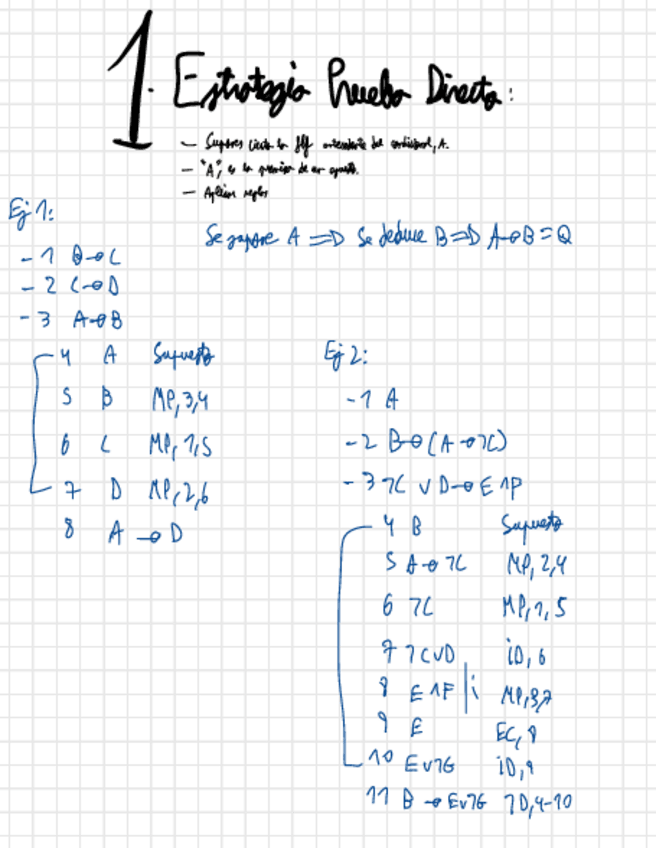 1. Estrategia Prueba Directa:
- Supones cierto la fbf antecedente del condicional, A.
- "A", es la premisa de un supuesto.
- Aplicar reglas
Se supone A ⇒ Se deduce B ⇒ A→B = Q
Ej 1:
- 1 B→C
- 2 C→D
- 3 A→B
4 A Supuesto
5 B MP, 3,4
6 C MP, 1,5
7 D MP, 2,6
8 A → D
Ej 2:
- 1 A
- 2 B→(A→¬C)
- 3 ¬C ∨ D→E ∧ F
4 B Supuesto
5 A→¬C MP, 2,4
6 ¬C MP, 1, 5
7 ¬C∨D iD, 6
8 E ∧F | i MP, 3,7
9 E EC, 8
10 E∨¬G iD, 9
11 B → E∨¬G 7D, 4-10